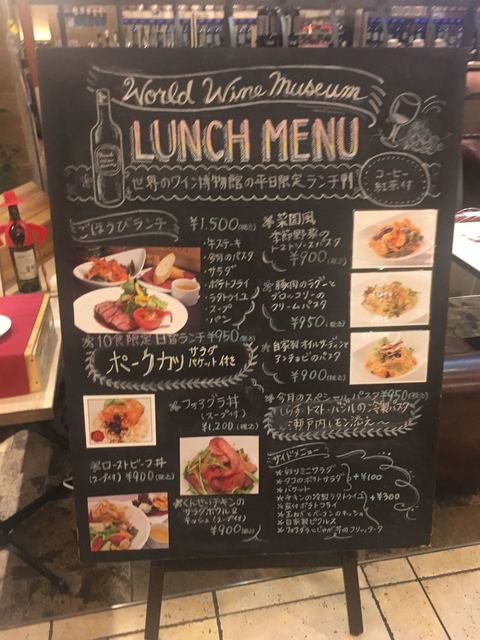 World Wine Museum
LUNCH MENU
世界のワイン博物館の平日限定ランチ!!
コーヒー
紅茶付
ごほうびランチ
¥1.500(税込)
・牛ステーキ
・今月のパスタ
・サラダ
・ポテトフライ
・ラタトゥイユ
・スープ
・パン
※10食限定日替ランチ¥950(税込)
ポークカツ サラダ
バゲット付き
フォアグラ丼
(スープ付)
¥1,200(税込)
※ローストビーフ丼
(スープ付) ¥900(税込)
※くんせいチキンの
サラダボウル&
キッシュ(スープ付)
¥900(税込)
※菜園風
季節野菜の
トマトソースパスタ
¥900(税込)
※豚肉のラグーと
ブロッコリーの
クリームパスタ
¥950(税込)
※自家製オイルサーディンと
アンチョビのパスタ
¥900(税込)
※今月のスペシャルパスタ¥950(税込)
しらす・トマト・バジルの冷製パスタ
〜瀬戸内レモン添え〜
サイドメニュー
※彩りミニサラダ
※タコのポテトサラダ
※バゲット
+¥100
※チキンの冷製ラタトゥイユ
※皮付ポテトフライ
※玉ねぎとベーコンのキッシュ
※自家製ピクルス
※フォアグラとじゃが芋のフリッタータ
+¥300